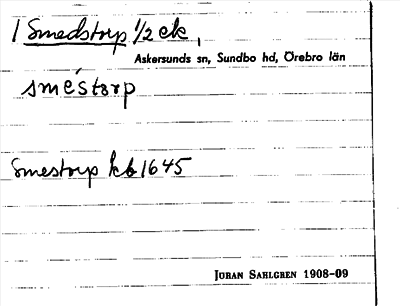 / Smedstorp 1/2 ek,
Askersunds sn, Sundbo hd, Örebro län
smèstorp
Smestorp kb 1645
JÖRAN SAHLGREN 1908-09